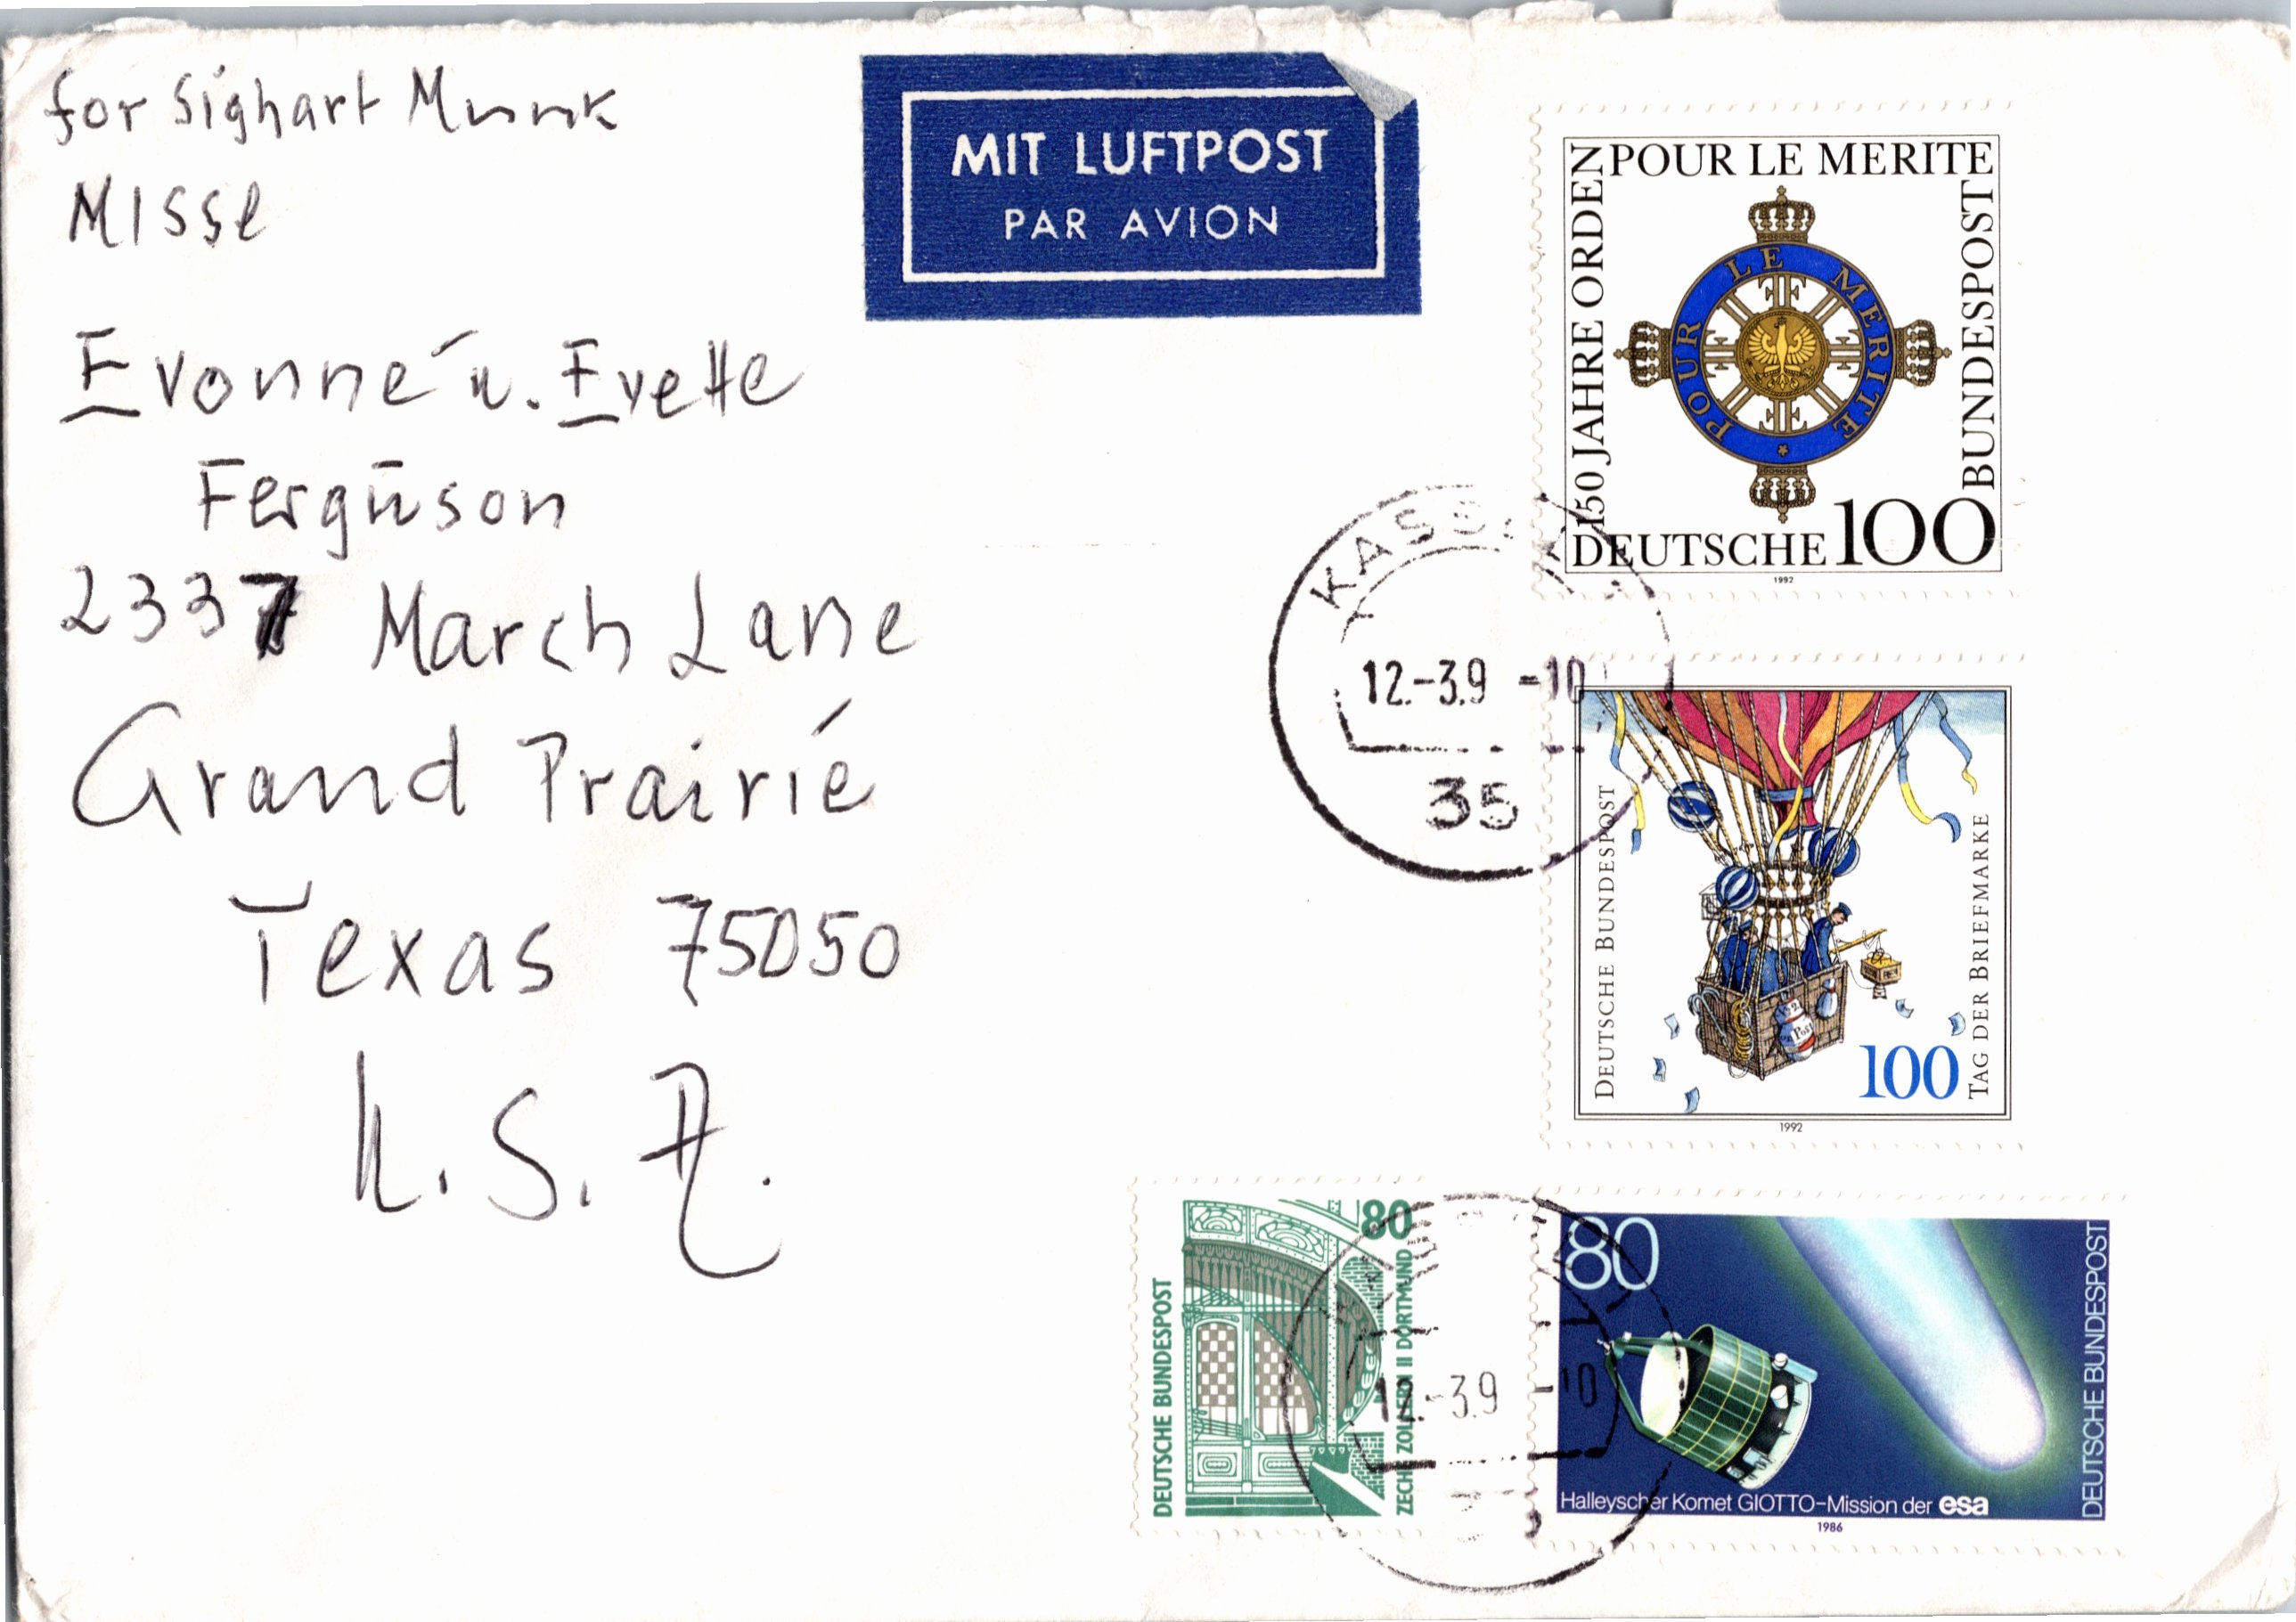 for Sighart Munk
MISSE
Evonné u. Evette
Fergūson
2337 March Lane
Grand Prairié
Texas 75050
U.S.A.
MIT LUFTPOST
PAR AVION
150 JAHRE ORDEN
POUR LE MERITE
BUNDESPOST
POUR LE MERITE
DEUTSCHE 100
1992
KASSEL
12.-3.9 -10
35
DEUTSCHE BUNDESPOST
Post
100
TAG DER BRIEFMARKE
1992
DEUTSCHE BUNDESPOST
80
ZECHE ZOLLERN II DORTMUND
12.-3.9 -10
80
DEUTSCHE BUNDESPOST
Halleyscher Komet GIOTTO-Mission der esa
1986